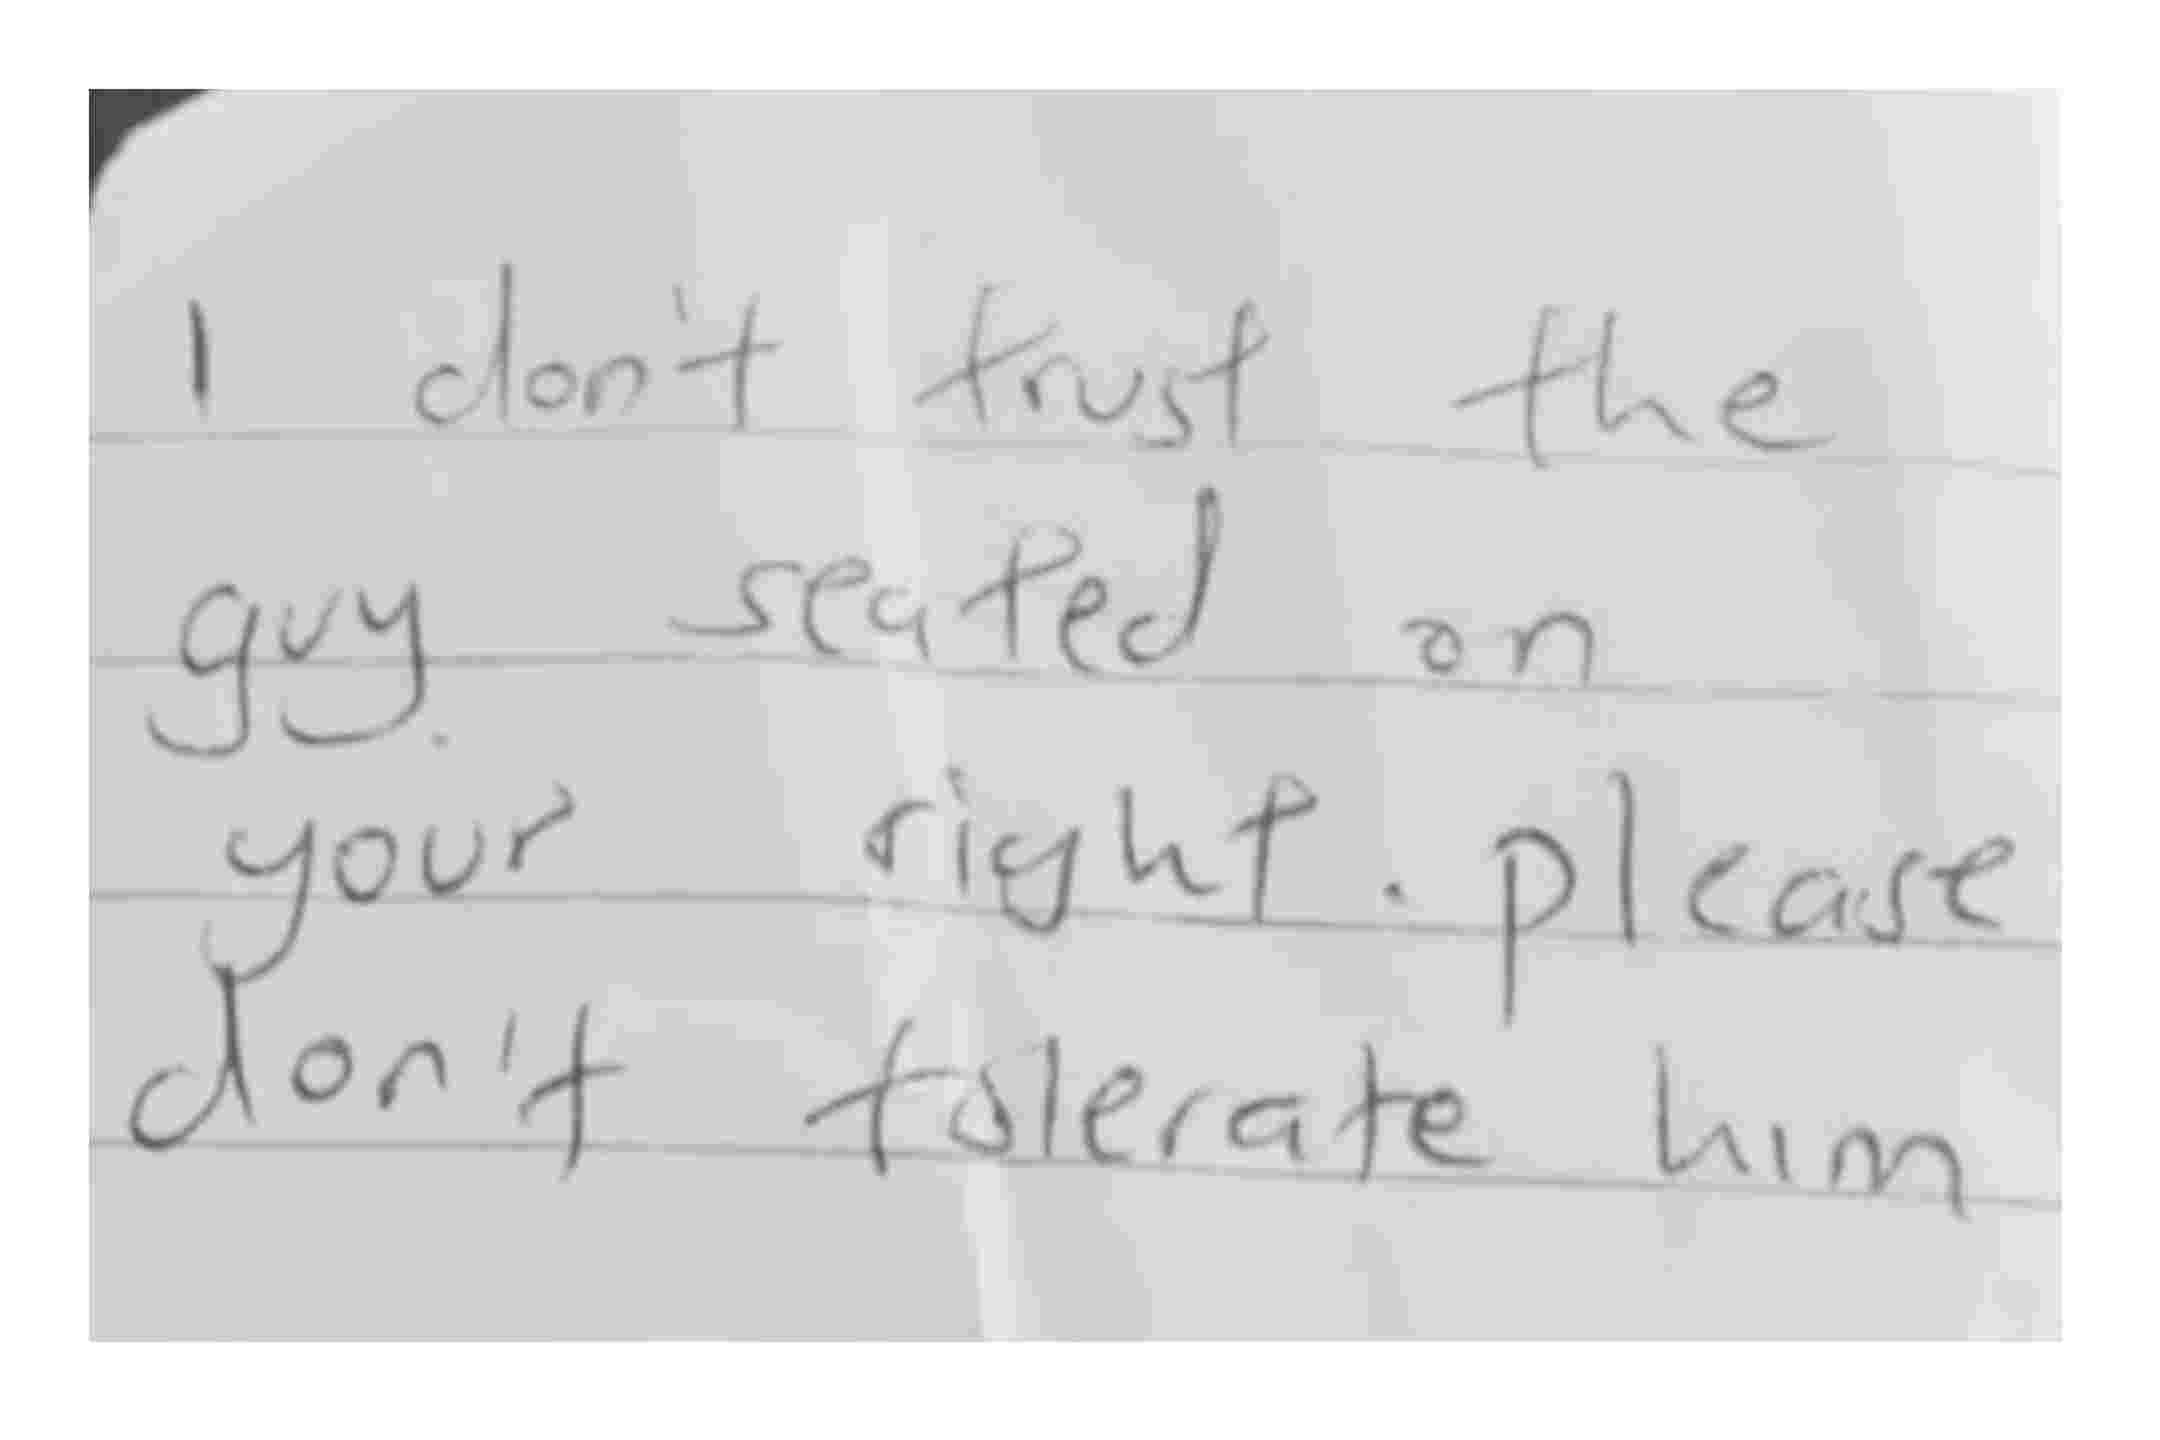 I don't trust the
guy. seated on
your right. please
don't tolerate him